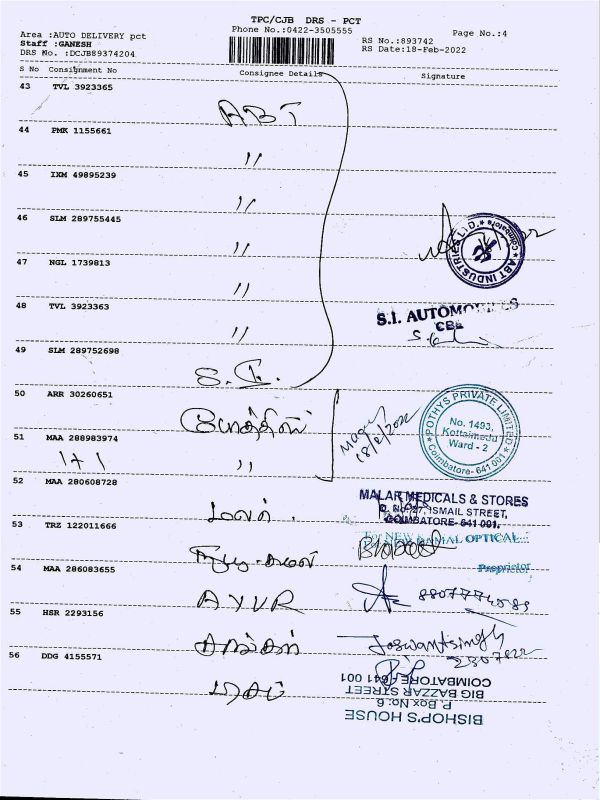 TPC/CJB DRS - PCT
Area :AUTO DELIVERY pct
Phone No.:0422-3505555
Page No.:4
Staff :GANESH
RS No.:893742
DRS No. :DCJB89374204
RS Date:18-Feb-2022
S No Consignment No Consignee Details Signature
43 TVL 3923365
ABT
44 PMK 1155661
"
45 IXM 49895239
"
46 SLM 289755445
"
ABT INDUSTRIES LTD. * Coimbatore *
47 NGL 1739813
"
48 TVL 3923363
"
S.I. AUTOMOBILES
CBE
49 SLM 289752698
S.I.
50 ARR 30260651
போத்தீஸ்
18/2/2022
* POTHYS PRIVATE LIMITED *
No. 1493,
Kottaimedu
Ward - 2
Coimbatore- 641 001
51 MAA 288983974
1+1
"
52 MAA 280608728
மலர்.
MALAR MEDICALS & STORES
ISMAIL STREET,
COIMBATORE- 641 001.
53 TRZ 122011666
கமல்
For NEW KAMAL OPTICAL
Proprietor
54 MAA 286083655
AYUR
55 HSR 2293156
Jaswantsingh
56 DDG 4155571
BISHOP'S HOUSE
P. Box No: 6
BIG BAZZAR STREET
COIMBATORE - 641 001